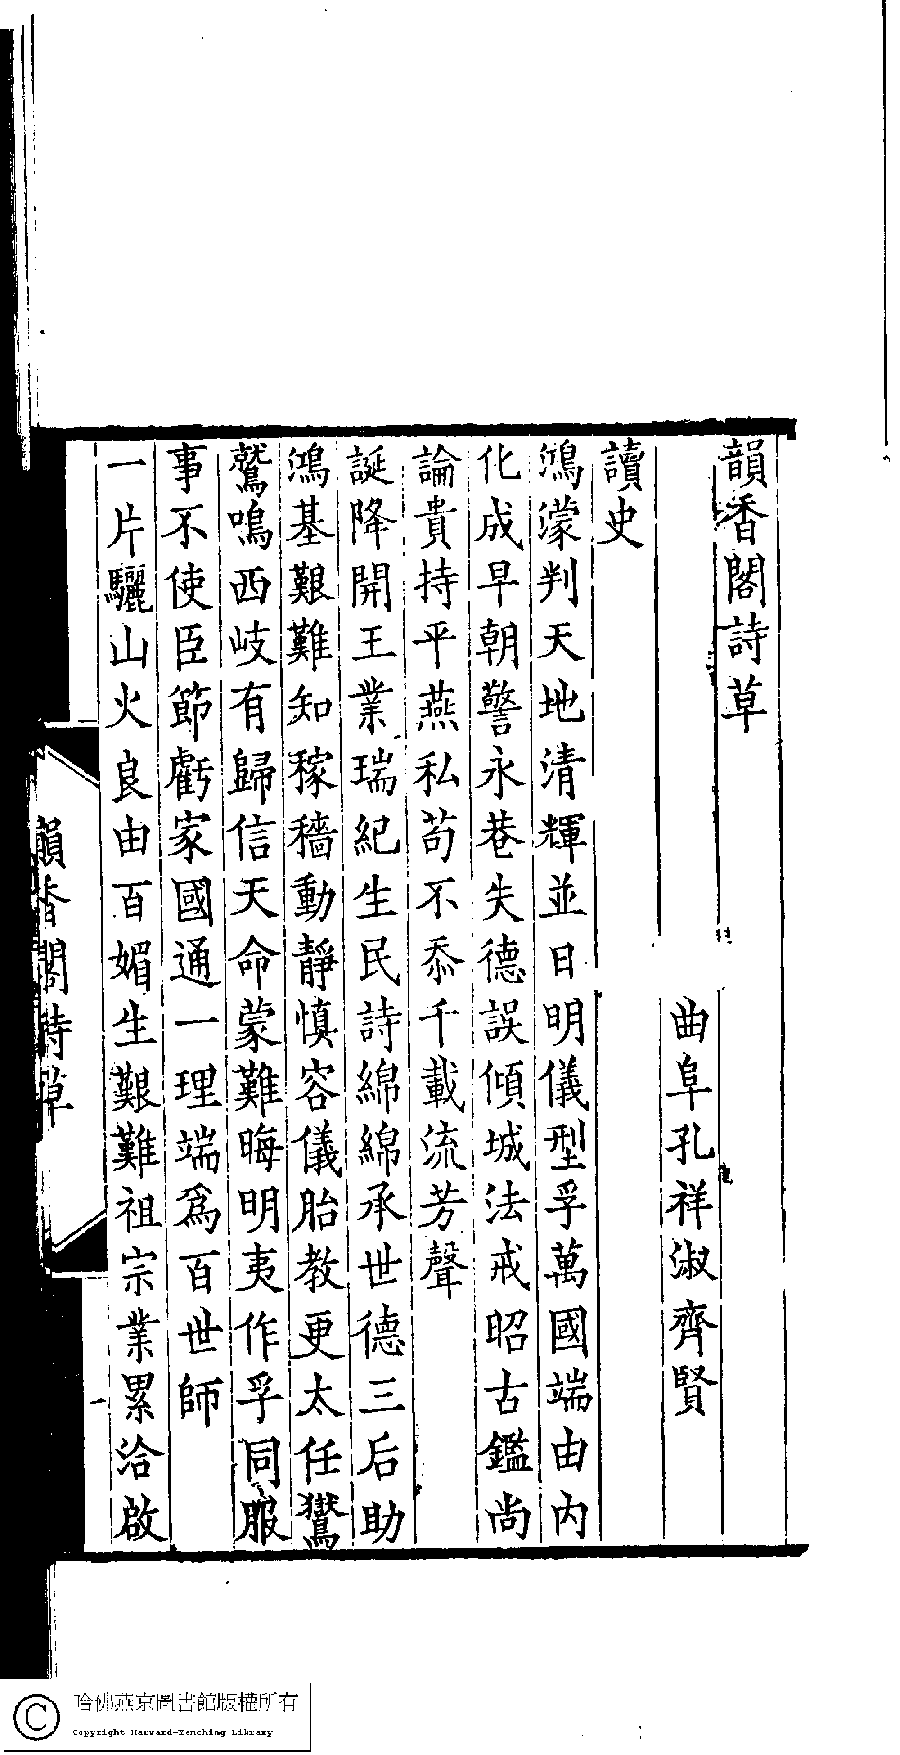 韻香閣詩草
曲阜孔祥淑齊賢
讀史
鴻濛判天地清輝並日明儀型孚萬國端由內
化成早朝警永巷失德誤傾城法戒昭古鑑尚
論貴持平燕私苟不忝千載流芳聲
誕降開王業瑞紀生民詩綿綿承世德三后助
鴻基艱難知稼穡動靜慎容儀胎教更太任鸑
鷟鳴西岐有歸信天命蒙難晦明夷作孚同服
事不使臣節虧家國通一理端為百世師
一片驪山火良由百媚生艱難祖宗業累洽啟
韻香閣詩草
一
哈佛燕京圖書館版權所有
Copyright Harvard-Yenching Library